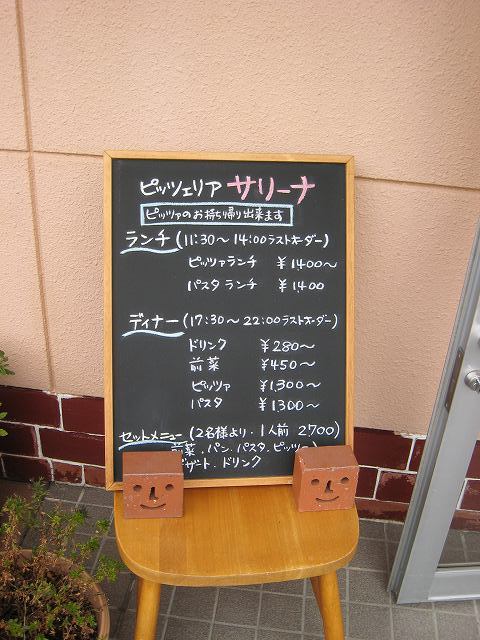 ピッツェリア サリーナ
ピッツァのお持ち帰り出来ます
ランチ (11:30〜14:00ラストオーダー)
ピッツァランチ ¥1400〜
パスタランチ ¥1400
ディナー (17:30〜22:00ラストオーダー)
ドリンク ¥280〜
前菜 ¥450〜
ピッツァ ¥1,300〜
パスタ ¥1300〜
セットメニュー (2名様より・1人前 2700)
前菜、パン、パスタ、ピッツァ
デザート、ドリンク